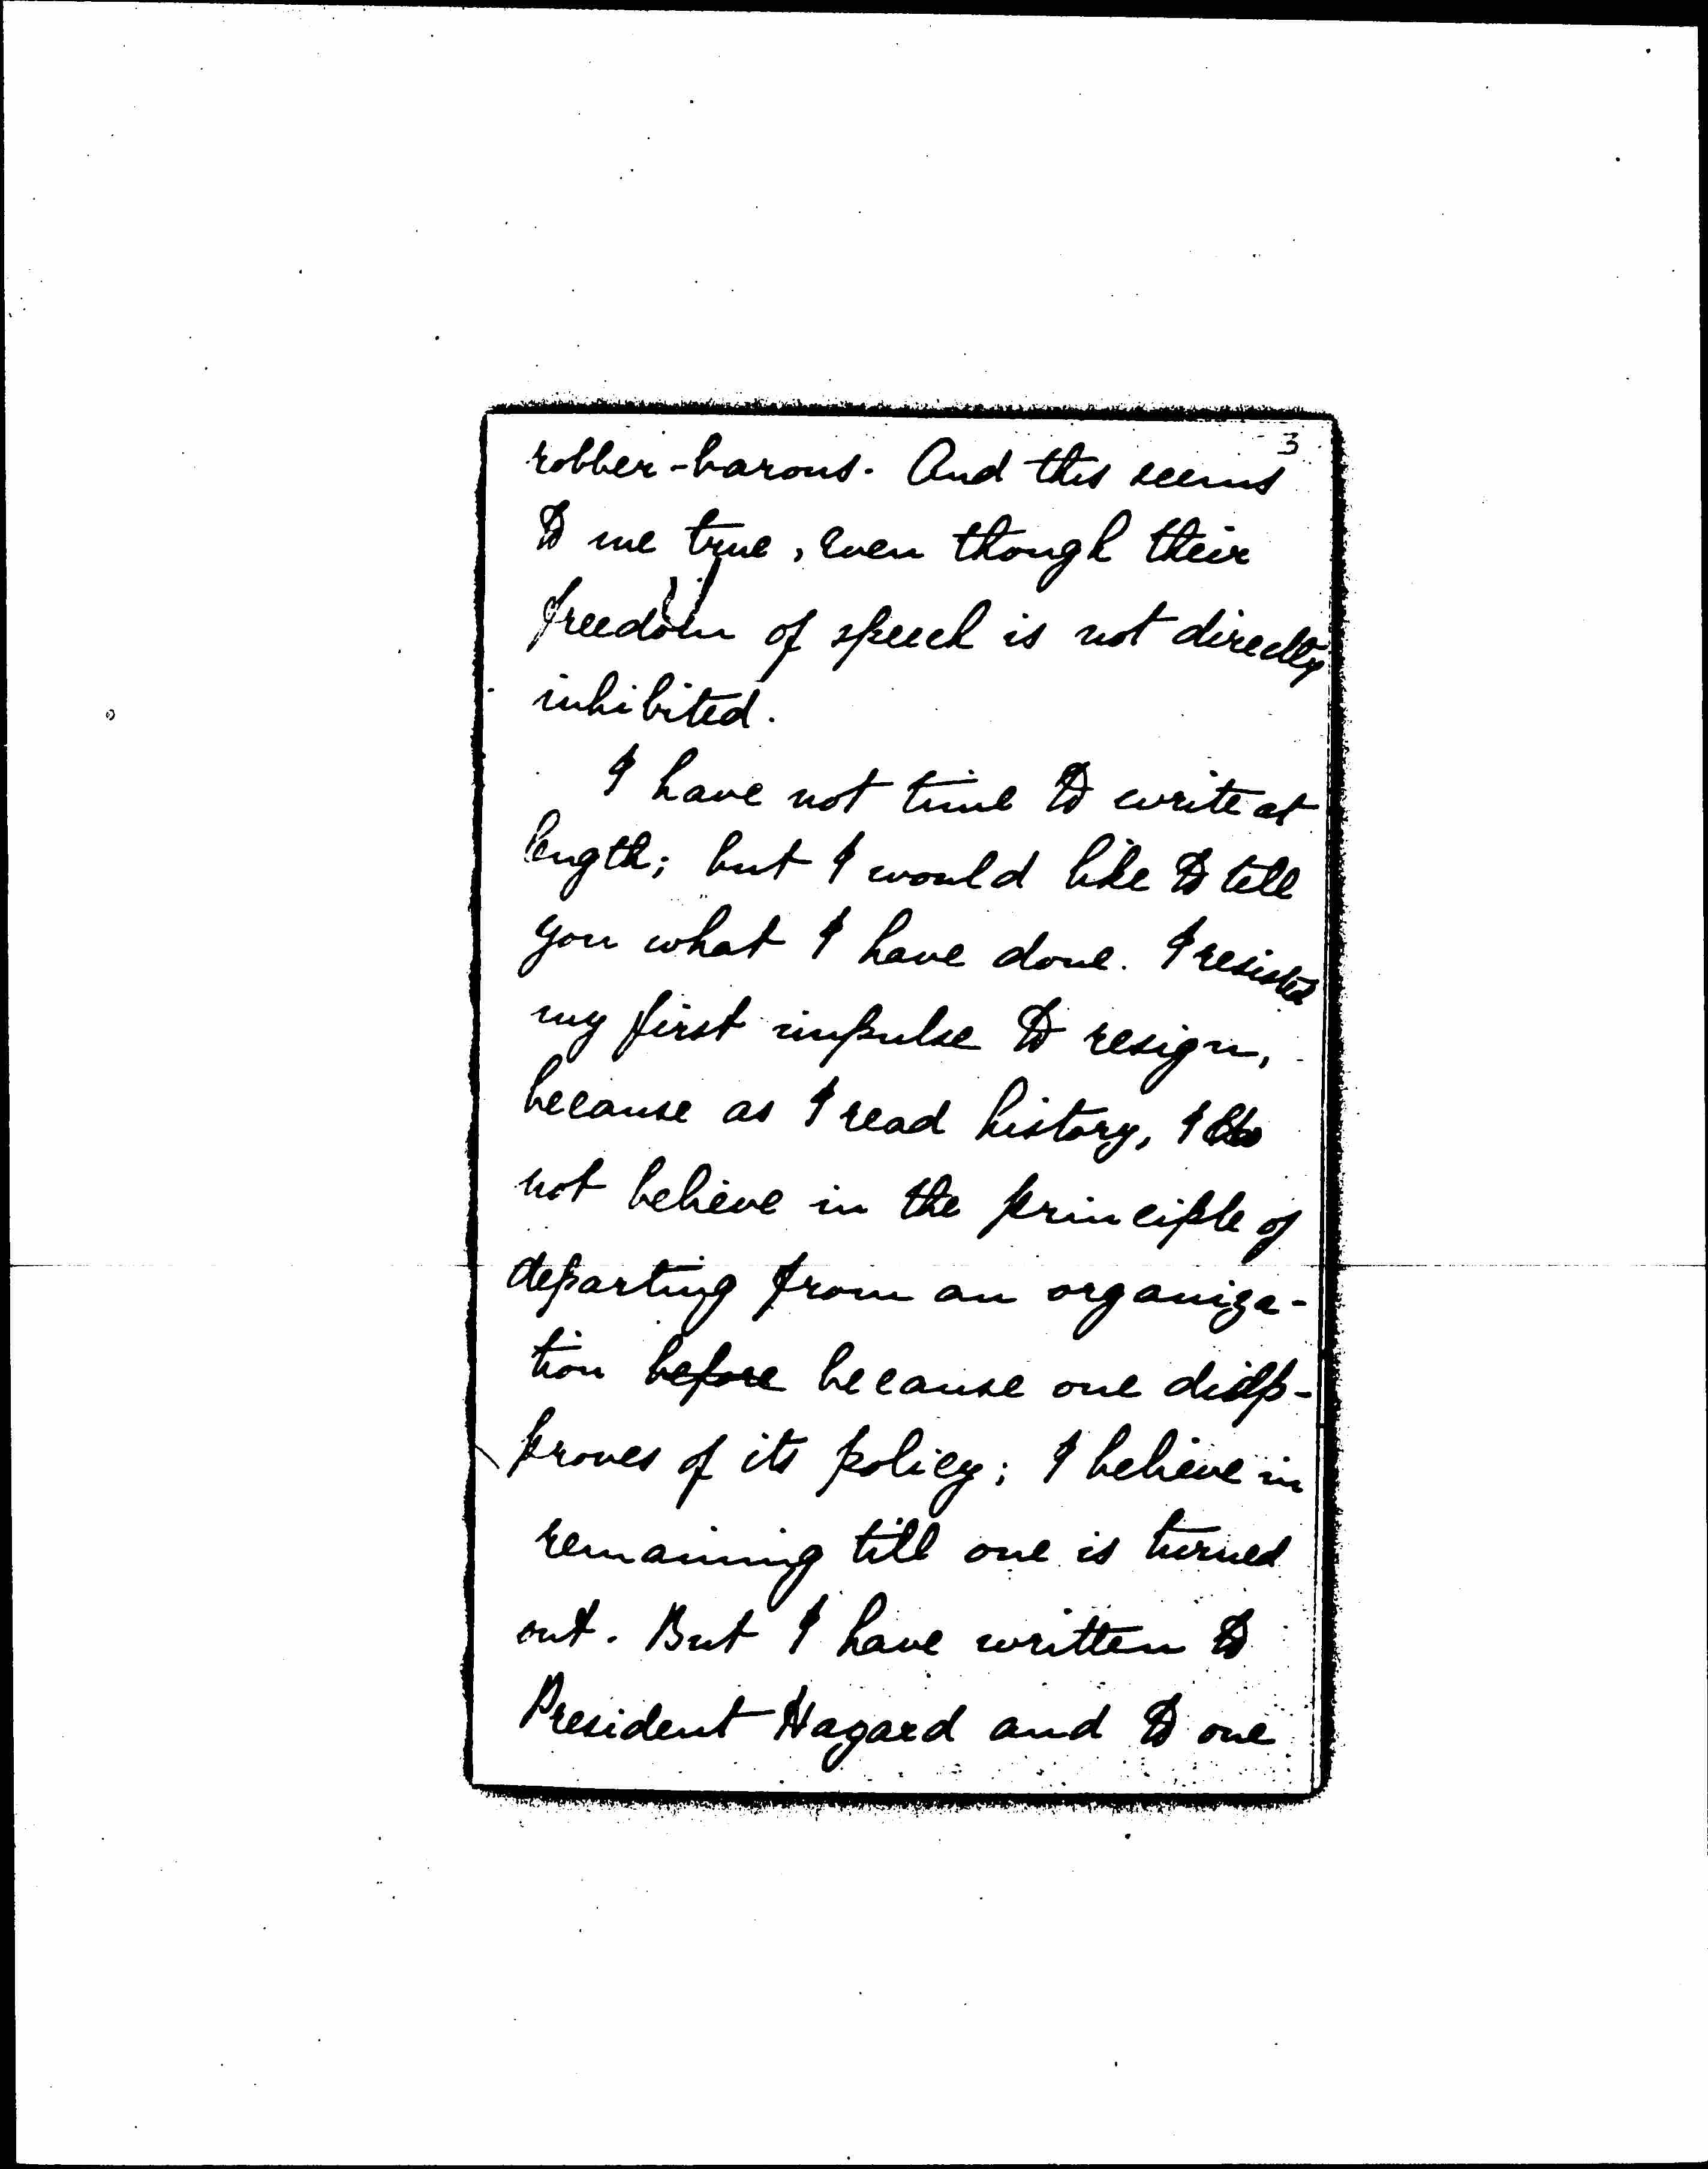 3
robber-barons. And this seems
to me true, even though their
freedom of speech is not directly
inhibited.
I have not time to write at
length; but I would like to tell
you what I have done. I resisted
my first impulse to resign,
because as I read history, I do
not believe in the principle of
departing from an organiza-
tion before because one disap-
proves of its policy; I believe in
remaining till one is turned
out. But I have written to
President Hazard and to one